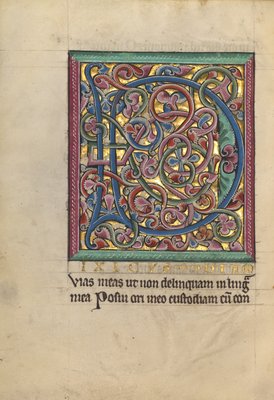 D
IXI CVSTODIAM
vias meas ut non delinquam in ling
mea Posui ori meo custodiam cū con